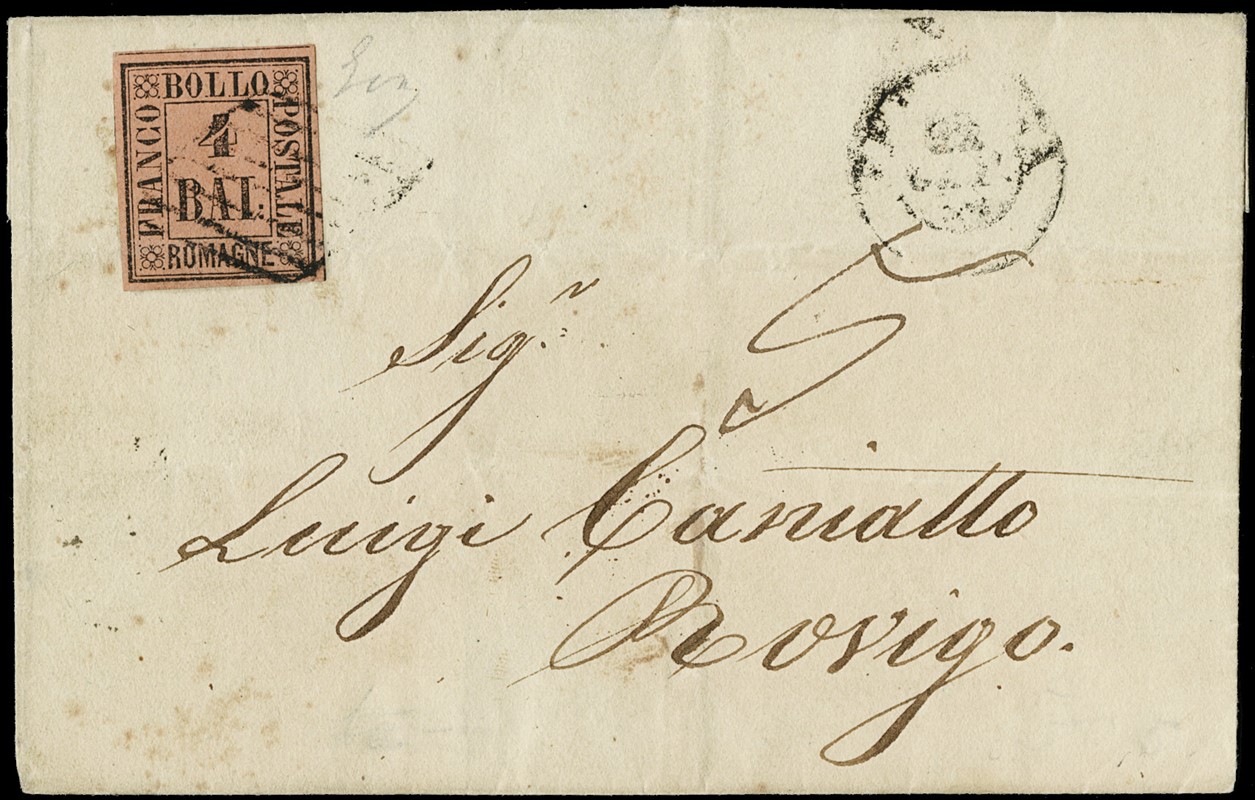 BOLLO
FRANCO
POSTALE
4
BAI
ROMAGNE
Sig.r
Luigi Caniatto
Rovigo.